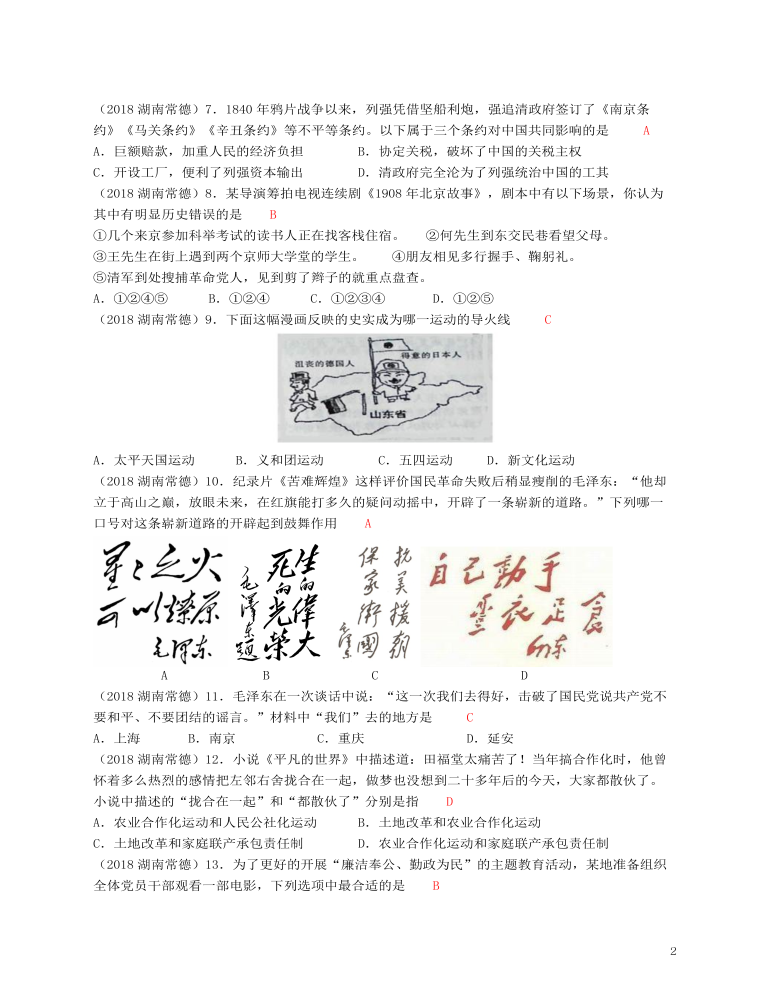 （2018 湖南常德）7．1840 年鸦片战争以来，列强凭借坚船利炮，强追清政府签订了《南京条
约》《马关条约》《辛丑条约》等不平等条约。以下属于三个条约对中国共同影响的是 A
A．巨额赔款，加重人民的经济负担 B．协定关税，破坏了中国的关税主权
C．开设工厂，便利了列强资本输出 D．清政府完全沦为了列强统治中国的工其
（2018 湖南常德）8．某导演筹拍电视连续剧《1908 年北京故事》，剧本中有以下场景，你认为
其中有明显历史错误的是 B
①几个来京参加科举考试的读书人正在找客栈住宿。 ②何先生到东交民巷看望父母。
③王先生在街上遇到两个京师大学堂的学生。 ④朋友相见多行握手、鞠躬礼。
⑤清军到处搜捕革命党人，见到剪了辫子的就重点盘查。
A．①②④⑤ B．①②④ C．①②③④ D．①②⑤
（2018 湖南常德）9．下面这幅漫画反映的史实成为哪一运动的导火线 C
沮丧的德国人
得意的日本人
山东省
A．太平天国运动 B．义和团运动 C．五四运动 D．新文化运动
（2018 湖南常德）10．纪录片《苦难辉煌》这样评价国民革命失败后稍显瘦削的毛泽东：“他却
立于高山之巅，放眼未来，在红旗能打多久的疑问动摇中，开辟了一条崭新的道路。”下列哪一
口号对这条崭新道路的开辟起到鼓舞作用 A
星々之火
可以燎原
毛泽东
生的偉大
死的光榮
毛澤东題
抗美援朝
保家衛國
毛泽东
自己動手
豐衣足食
毛泽东
A B C D
（2018 湖南常德）11．毛泽东在一次谈话中说：“这一次我们去得好，击破了国民党说共产党不
要和平、不要团结的谣言。”材料中“我们”去的地方是 C
A．上海 B．南京 C．重庆 D．延安
（2018 湖南常德）12．小说《平凡的世界》中描述道：田福堂太痛苦了！当年搞合作化时，他曾
怀着多么热烈的感情把左邻右舍拢合在一起，做梦也没想到二十多年后的今天，大家都散伙了。
小说中描述的“拢合在一起”和“都散伙了”分别是指 D
A．农业合作化运动和人民公社化运动 B．土地改革和农业合作化运动
C．土地改革和家庭联产承包责任制 D．农业合作化运动和家庭联产承包责任制
（2018 湖南常德）13．为了更好的开展“廉洁奉公、勤政为民”的主题教育活动，某地准备组织
全体党员干部观看一部电影，下列选项中最合适的是 B
2